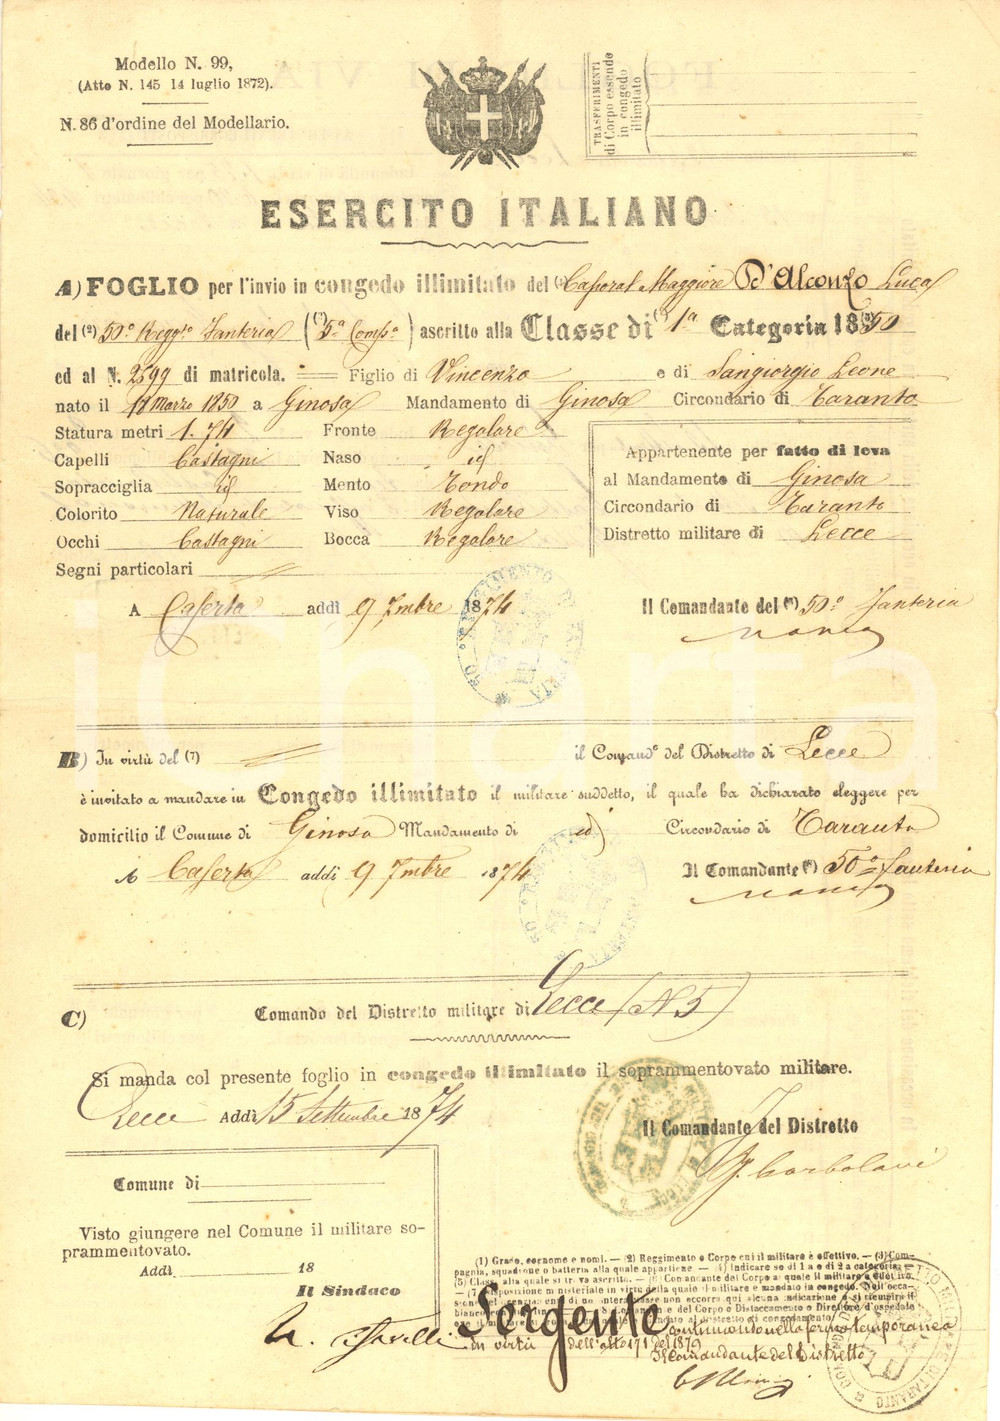 Modello N. 99,
(Atto N. 145 14 luglio 1872).
N. 86 d'ordine del Modellario.
TRASFERIMENTI
di Corpo essendo
in congedo
illimitato
ESERCITO ITALIANO
A) FOGLIO per l'invio in congedo illimitato del (1) Caporal Maggiore D'Alconzo Luca
del (2) 50° Reggto Fanteria (3) (5a Compa) ascritto alla Classe di (4) 1a Categoria 18(5)50
ed al N. 2599 di matricola. Figlio di Vincenzo e di Sangiorgio Leone
nato il 12 Marzo 1850 a Ginosa Mandamento di Ginosa Circondario di Taranto
Statura metri 1.74 Fronte Regolare
Capelli Castagni Naso id
Sopracciglia id Mento Tondo
Colorito Naturale Viso Regolare
Occhi Castagni Bocca Regolare
Segni particolari
Appartenente per fatto di leva
al Mandamento di Ginosa
Circondario di Taranto
Distretto militare di Lecce
A Caserta addì 9 7mbre 1874 Il Comandante del (6) 50° Fanteria
B) In virtù del (7) il Comando del Distretto di Lecce
è invitato a mandare in Congedo illimitato il militare suddetto, il quale ha dichiarato eleggere per
domicilio il Comune di Ginosa Mandamento di id Circondario di Taranto
A Caserta addì 9 7mbre 1874 Il Comandante (8) 50° Fanteria
iCharta
C) Comando del Distretto militare di Lecce (N 5)
Si manda col presente foglio in congedo illimitato il soprammentovato militare.
Lecce Addì 15 Settembre 1874
Il Comandante del Distretto
Comune di
Visto giungere nel Comune il militare so-
prammentovato.
Addì 18
Il Sindaco
(1) Grado, cognome e nomi. — (2) Reggimento o Corpo cui il militare è effettivo. — (3) Com-
pagnia, squadrone o batteria alla quale appartiene — (4) Indicare se di 1a o di 2a categoria. —
(5) Classe alla quale si trova ascritto. — (6) Comandante del Corpo al quale il militare è effettivo.
— (7) Disposizione ministeriale in virtù della quale il militare è mandato in congedo.
Sergente
continuando nella ferma temporanea
in virtù dell'atto 171 del 1879
Il Comandante del Distretto